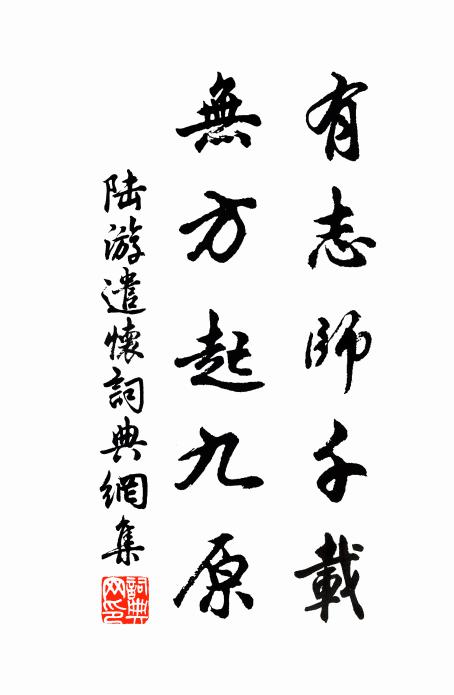 有志師千載
無方起九原
陸游遣懷詞典網集
詞典網印